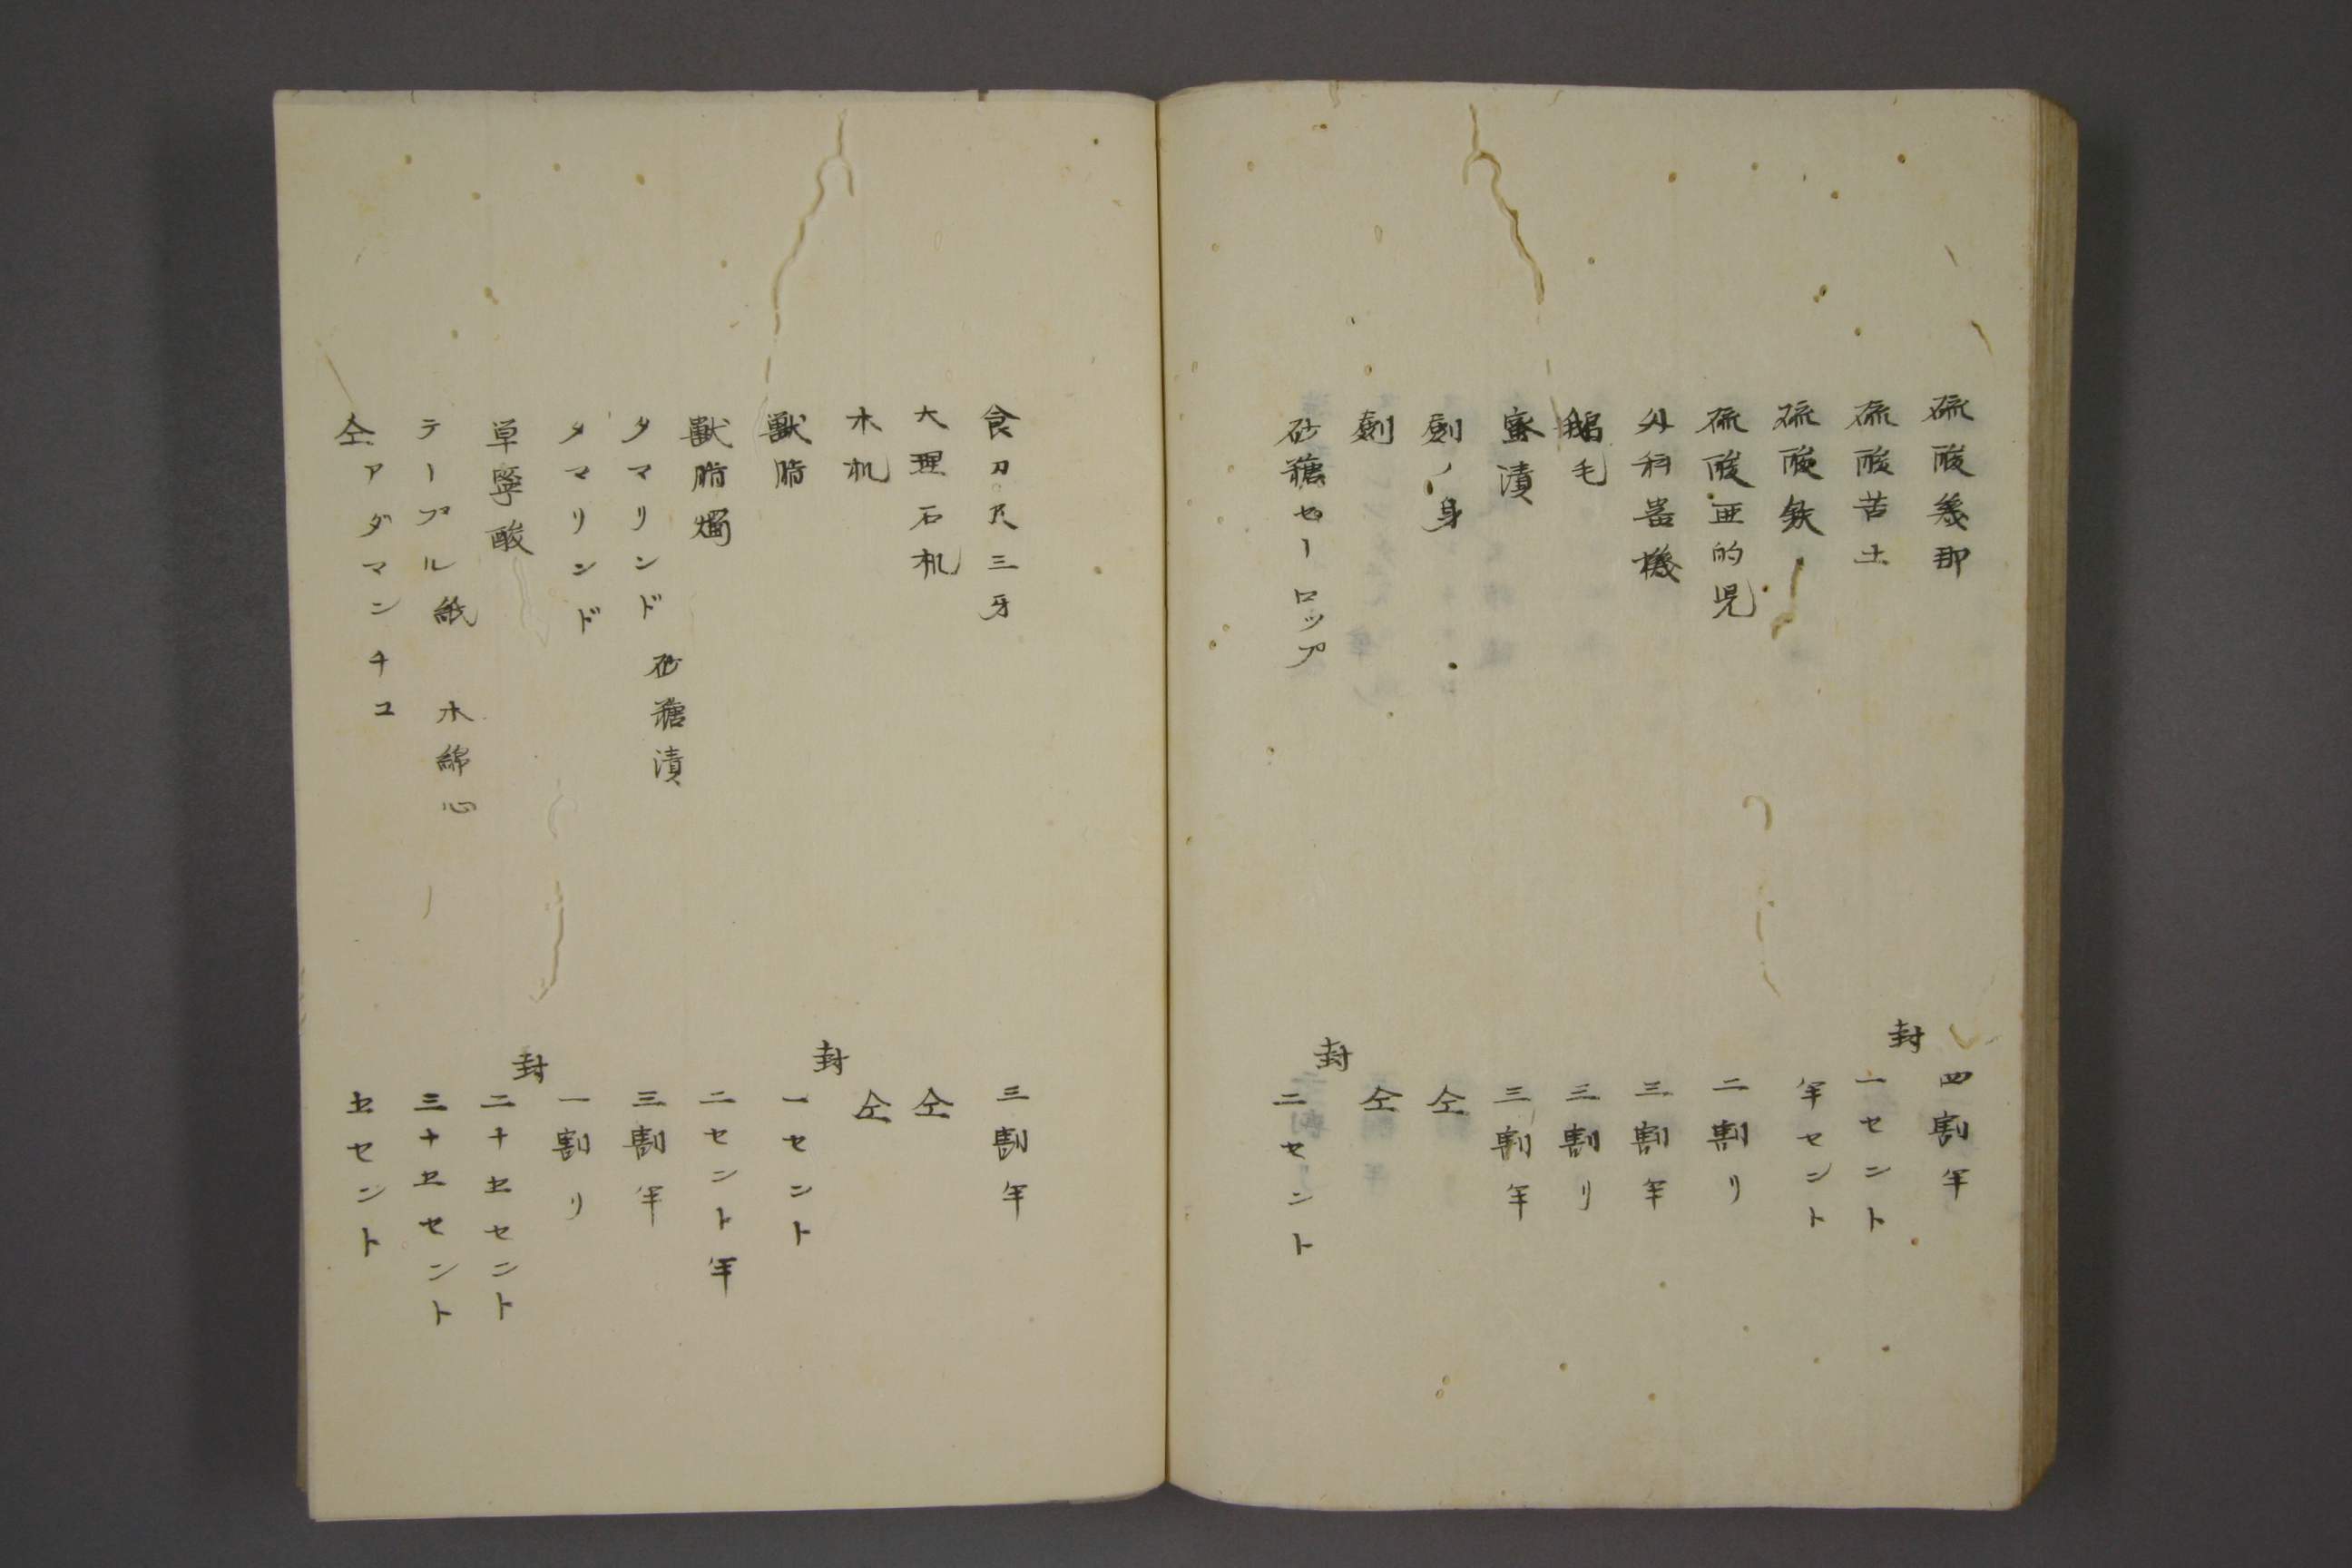 硫酸幾那 四割半
硫酸苦土 封 一セント
硫酸鉄 半セント
硫酸亜的児 二割リ
外科器機 三割半
鵝毛 三割リ
蜜漬 三割半
劍ノ身 仝
劍 仝
砂糖セーロップ 封 二セント
食刀尺三牙 三割半
大理石机 仝
木机 仝
獣脂 封 一セント
獣脂燭 二セント半
タマリンド 砂糖漬 三割半
タマリンド 一割リ
単寧酸 封 二十五セント
テープル紙 木綿心 三十五セント
仝アダマンチコ 五セント